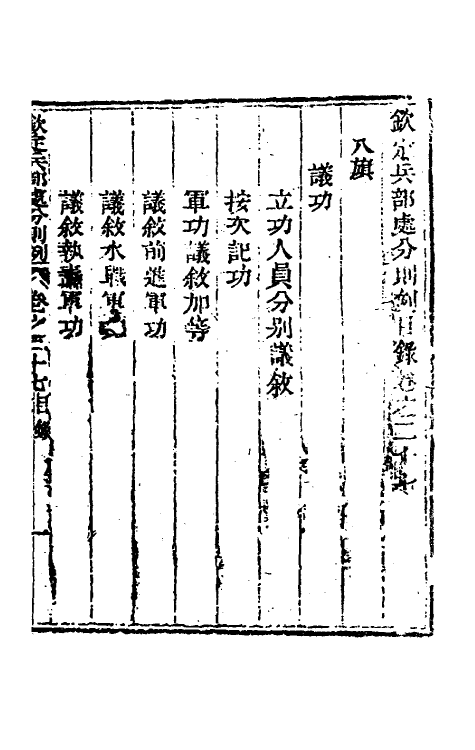 欽定兵部處分則例目錄卷之二十七
八旗
議功
立功人員分別議敘
按次記功
軍功議敘加等
議敘前進軍功
議敘水戰軍
議敘執纛軍功
欽定兵部處分則例 八旗卷之二十七目錄 一